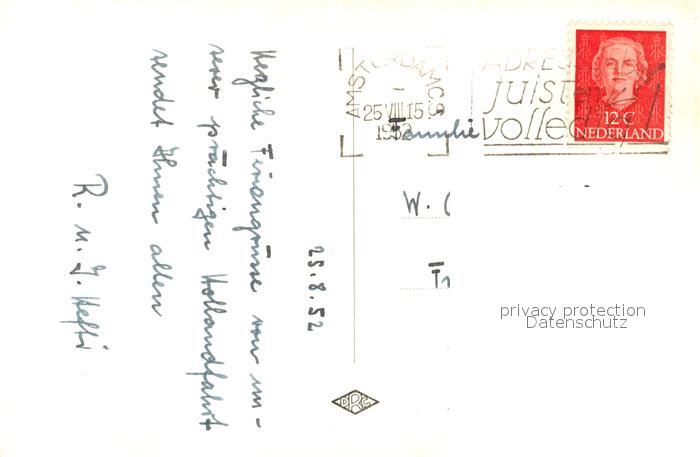 25.8.52
Herzliche Feriengrüsse von un-
serer prächtigen Hollandfahrt
sendet Ihnen allen
R. u. J. Hefti
AMSTERDAM CS
25 VIII 15
1952
ADRES
juist en
volledig
12 C
NEDERLAND
Familie
W.
privacy protection
Datenschutz
DRG